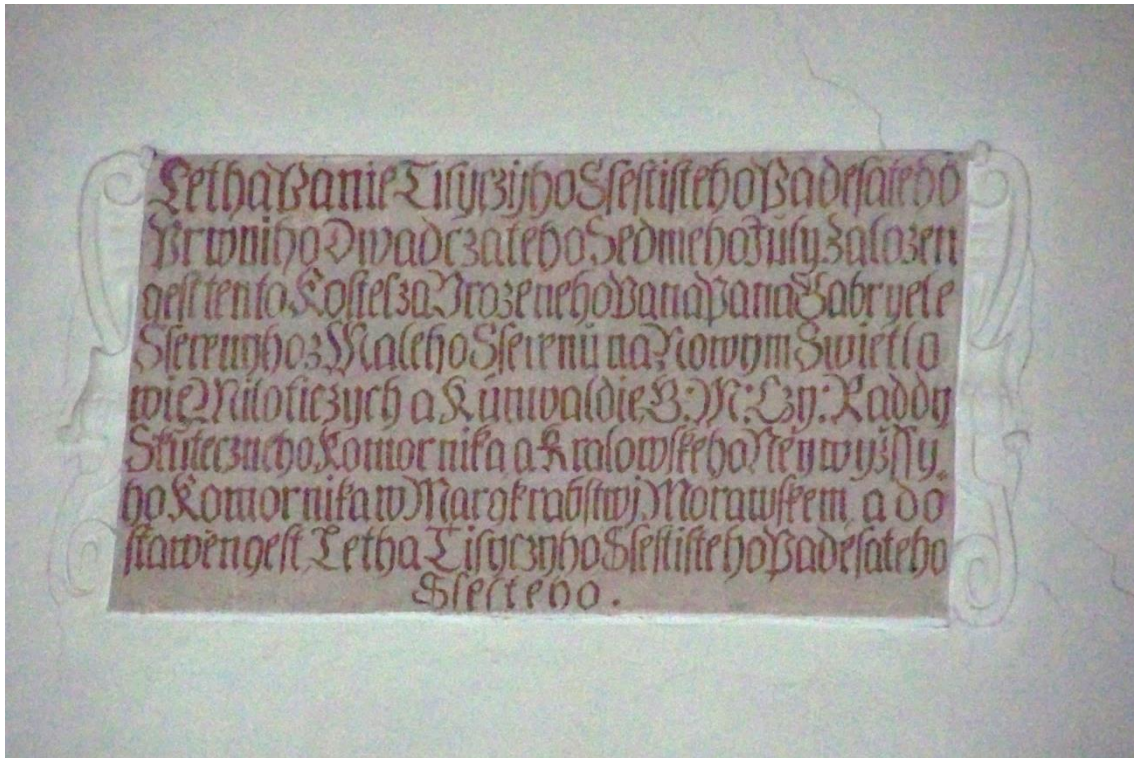 Letha Panie Tisyczyho Sſeſtiſteho Padeſateho
Prwniho Dwadczateho Sedmeho July Zalozen
geſt tento Koſtel za Vrozeneho Pana Pana Gabryele
Sſerenyho z Maleho Sſerenu na Nowym Swietlo
wie Miloticzych a Kunwaldie G: M: Czy: Raddy
Skuteczneho Komornika a Kralowſkeho Neywyżſſy,
ho Komornika w Margkrabſtwj Morawſkem, a do
ſtawen geſt, Letha Tiſyczyho Sſeſtiſteho Padeſateho
Sſeſteho.